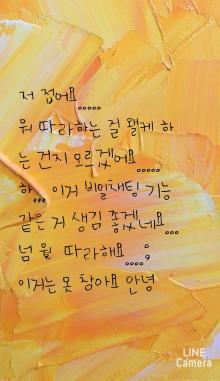 저 접어요.....
뭐 따라하는 걸 왤케 하
는 건지 모르겠어요.....
하... 이거 비밀채팅 기능
같은 거 생김 좋겠네요...
넘 뭘 따라해요...;
이거는 못 참아요 안녕
LINE
Camera